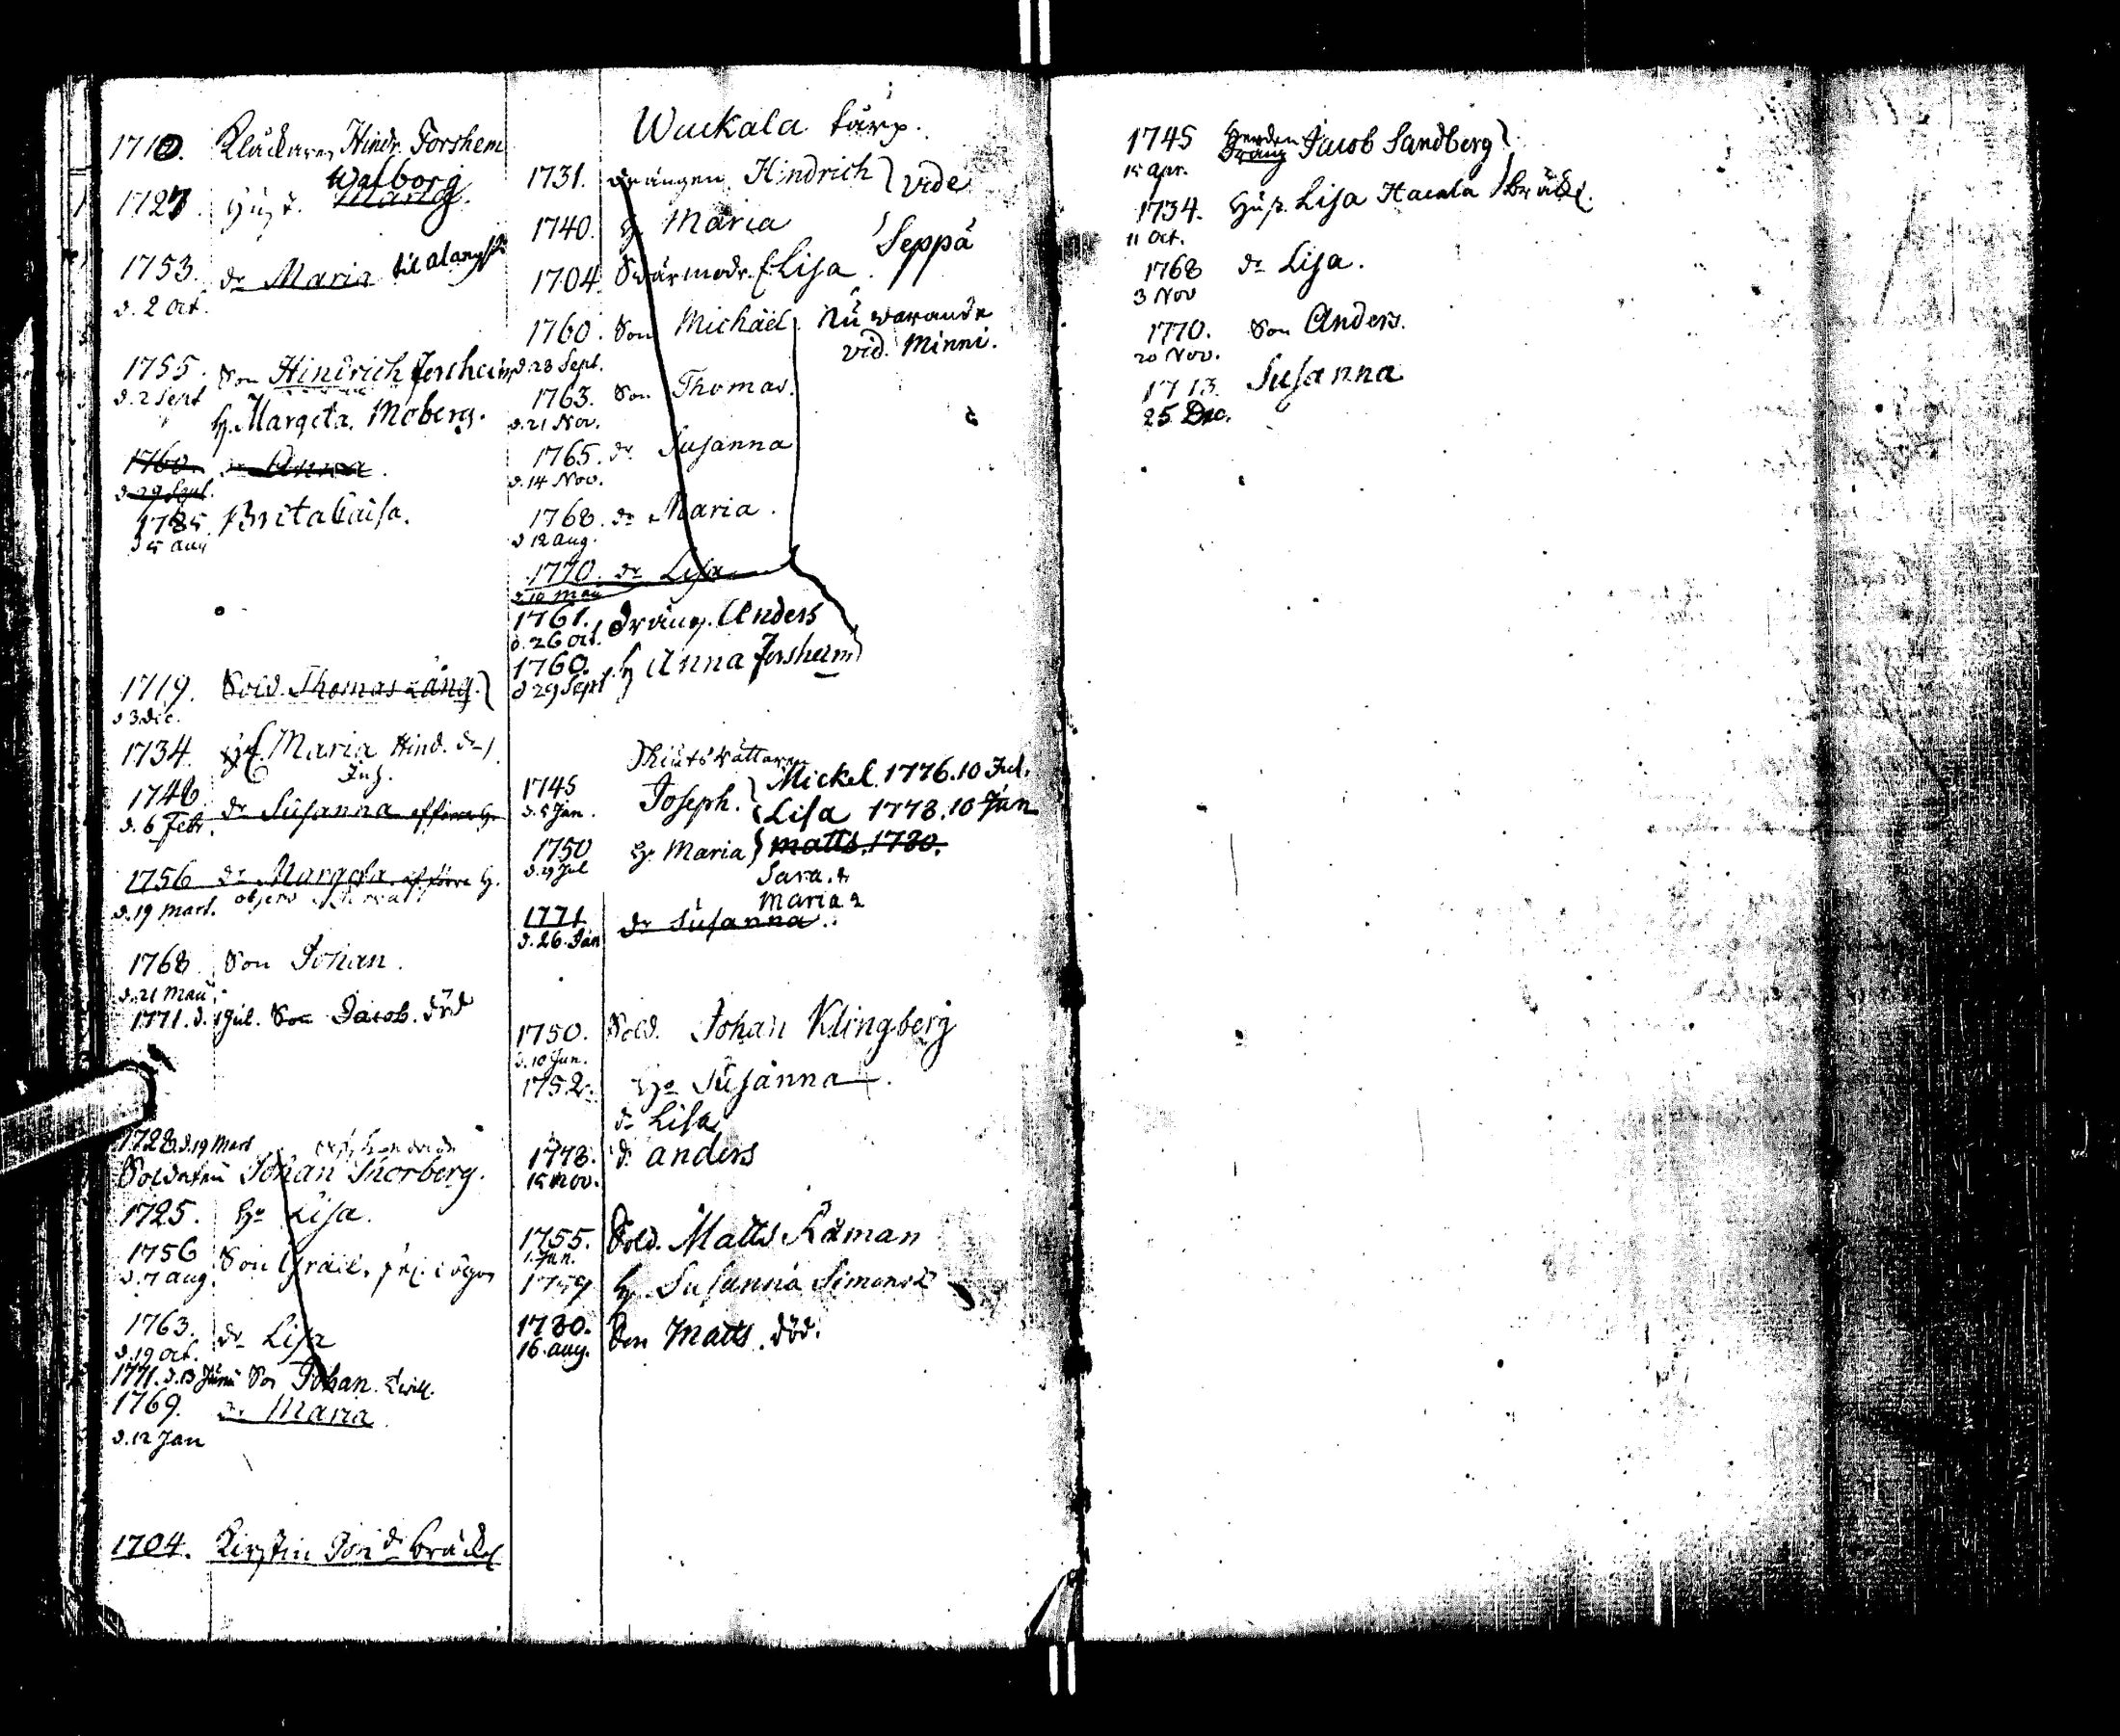 1710. Klåckaren Hindr. Forshem
Walborg
1727. Hust. Marg.
1753. dr Maria til alang
d. 2 Oct.
1755. Son Hindrich Forsheim
d. 2 Sept
H. Margeta Moberg.
1760. dr Anna.
d. 29 Sept.
1785. Brita Caisa.
d 5 aug
1719. Sold. Thomas Lång.
d 3 Dec.
1734. H. Maria Hind. dr
Inh.
1748. dr Susanna af förra H.
d. 6 Febr.
1756 dr Margeta af förra H.
d. 19 Mart.
1768. Son Johan.
d. 21 Maii
1771. d. 1 Jul. Son Jacob. död
1728 d. 19 Mart
Soldaten Johan Thorberg.
1725. Ho Lisa.
1756 Son Grael.
d. 7 aug.
1763. dr Lisa
d. 19 Oct.
1771. d. 13 Junii Son Johan. twill.
1769. dr Maria
d. 12 Jan
1704. Kirstin Jöri dr bräckl

Wuckala tårp.
1731. drängen Hindrich } vide
1740. H Maria Seppä
1704. Svärmodr. Elisa.
1760. Son Michäel. Nu varande
d. 23 Sept. vid. Minni.
1763. Son Thomas.
d. 21 Nov.
1765. dr Susanna
d. 14 Nov.
1768. dr Maria.
d 12 aug.
1770. dr Lisa
d. 10 Maii
1761. dräng. Anders
d. 26 Oct.
1760. H Anna Forsheim
d 29 Sept
Skiutsrättaren
1745 Joseph. } Mickel. 1776. 10 Jul.
d. 5 Jan. Lisa 1778. 10 Jan
1750 H. Maria } Matts. 1780.
d. 29 Jul Sara.
Maria
1771 dr Susanna.
d. 26 Jan
1750. Sold. Johan Klingberg
d. 10 Jun.
1752. Ho Susanna.
dr Lisa
1778. d. anders
15 Nov.
1755. Sold. Matts Råman
1. Jan.
1759 H. Susanna Simonsd
1780. Son Matts. död.
16. aug.

1745 Herden Jacob Sandberg
15 apr. Dräng
1734. Hust. Lisa Hacala bräckl.
11 Oct.
1768 dr Lisa.
3 Nov
1770. Son Anders.
20 Nov.
1713. Susanna
25 Dec.